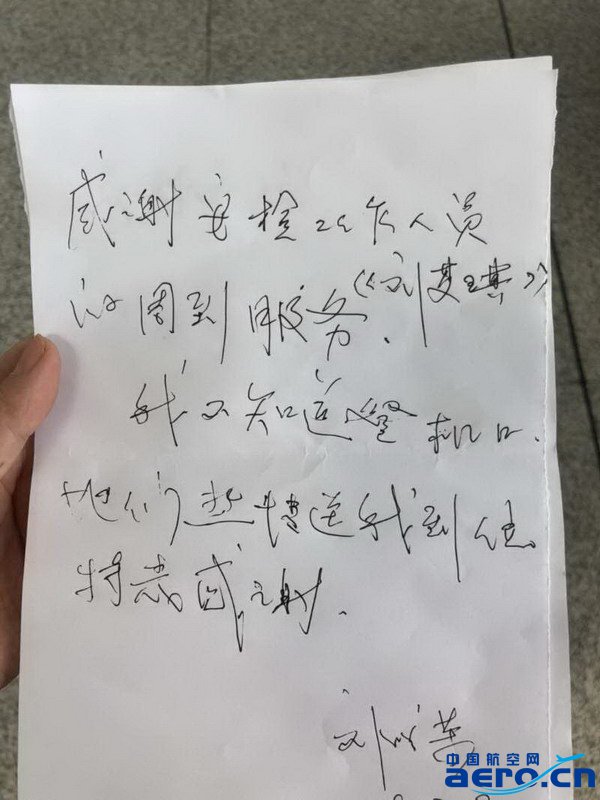 感谢安检工作人员
的周到服务.《刘
我不知道登机口.
他们热情送我到位
特表感谢.
刘
中国航空网
aero.cn